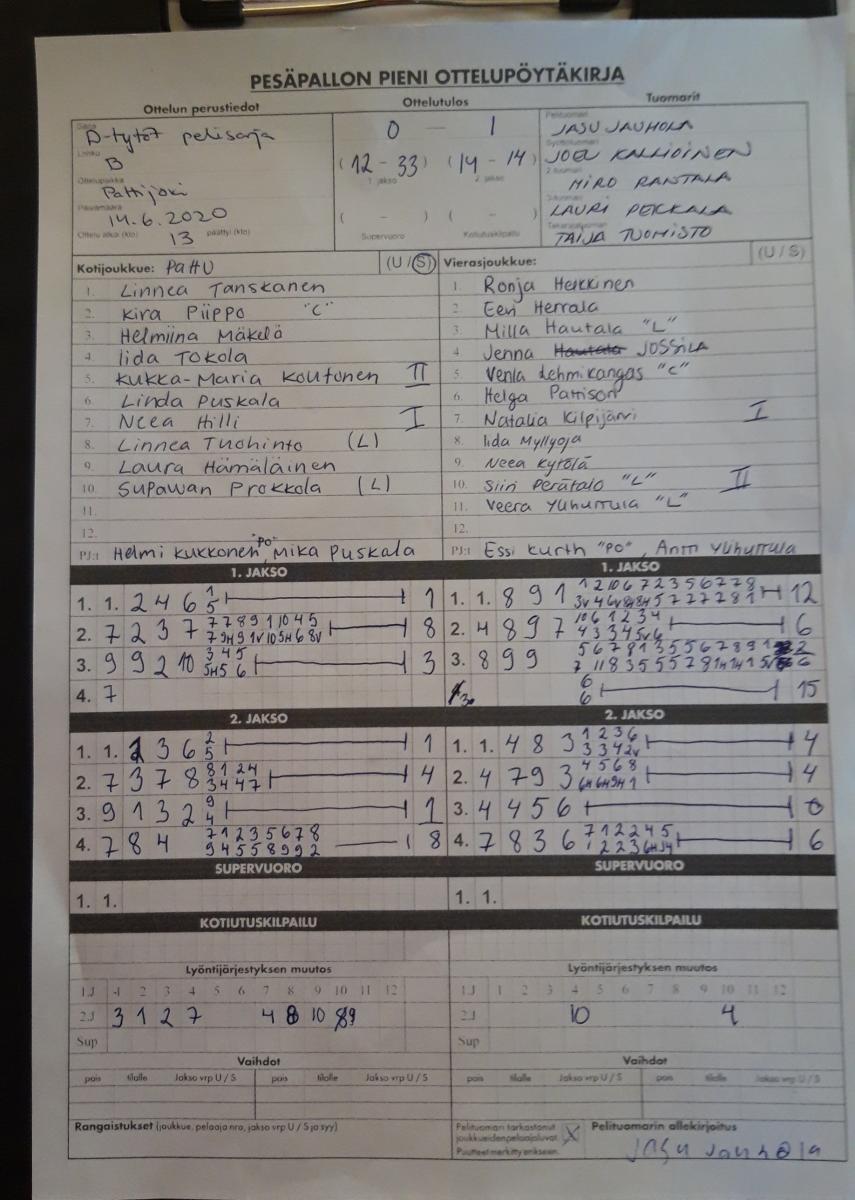 PESÄPALLON PIENI OTTELUPÖYTÄKIRJA
Ottelun perustiedot Ottelutulos Tuomarit
Sarja D-tytöt pelisarja
Lohko B
Ottelupaikka Pattijoki
Päivämäärä 14.6.2020
Ottelu alkoi (klo) 13 päättyi (klo)
0 - 1
(12 - 33) (14 - 14)
1. jakso 2. jakso
( - ) ( - )
Supervuoro Kotiutuskilpailu
Pelituomari JASU JAUHOLA
Syöttötuomari JOEL KALLIOINEN
2-tuomari MIRO RANTALA
3-tuomari LAURI PEKKALA
Takarajatuomari TAIJA TUOMISTO
Kotijoukkue: PattU (U / S)
1. Linnea Tanskanen
2. Kira Piippo "C"
3. Helmiina Mäkelä
4. Iida Tokola
5. Kukka-Maria Koutonen II
6. Linda Puskala
7. Neea Hilli I
8. Linnea Tuohinto (L)
9. Laura Hämäläinen
10. Supawan Prokkola (L)
11.
12.
PJ:t Helmi Kukkonen "PO", Mika Puskala
Vierasjoukkue: (U / S)
1. Ronja Heikkinen
2. Eeri Herrala
3. Milla Hautala "L"
4. Jenna Hautala JOSSILA
5. Venla Lehmikangas "C"
6. Helga Pattison
7. Natalia Kilpijärvi I
8. Iida Myllyoja
9. Neea Kytölä
10. Siiri Perätalo "L" II
11. Veera Ylihurtula "L"
12.
PJ:t Essi Kurth "PO", Antti Ylihurtula
1. JAKSO
1. 1. 2 4 6 1 5 1
2. 7 2 3 7 8
3. 9 9 2 10 3 4 5 5H 5 6 3
4. 7
1. JAKSO
1. 1. 8 9 1 12
2. 4 8 9 7 6
3. 8 9 9
6 6 15
2. JAKSO
1. 1. 2 3 6 2 5 1
2. 7 3 7 8 8 1 2 4 3 4 4 7 4
3. 9 1 3 2 9 4 1
4. 7 8 4 7 1 2 3 5 6 7 8 9 4 5 5 8 9 9 2 8
2. JAKSO
1. 1. 4 8 3 1 2 3 6 3 3 4 2v 4
2. 4 7 9 3 4 5 6 8 6H 6H 9H 1 4
3. 4 4 5 6 0
4. 7 8 3 6 7 1 2 2 4 5 6
SUPERVUORO
1. 1.
SUPERVUORO
1. 1.
KOTIUTUSKILPAILU
KOTIUTUSKILPAILU
Lyöntijärjestyksen muutos
1.J 1 2 3 4 5 6 7 8 9 10 11 12
2.J 3 1 2 7 4 8 10 9
Sup
Lyöntijärjestyksen muutos
1.J 1 2 3 4 5 6 7 8 9 10 11 12
2.J 10 4
Sup
Vaihdot
pois tilalle Jakso vrp U / S pois tilalle Jakso vrp U / S
Vaihdot
pois tilalle Jakso vrp U / S pois tilalle Jakso vrp U / S
Rangaistukset (joukkue, pelaaja nro, jakso vrp U / S ja syy)
Pelituomari tarkastanut
joukkueiden pelaajaluvat. X
Puutteet merkitty erikseen.
Pelituomarin allekirjoitus
Jasu Jauhola